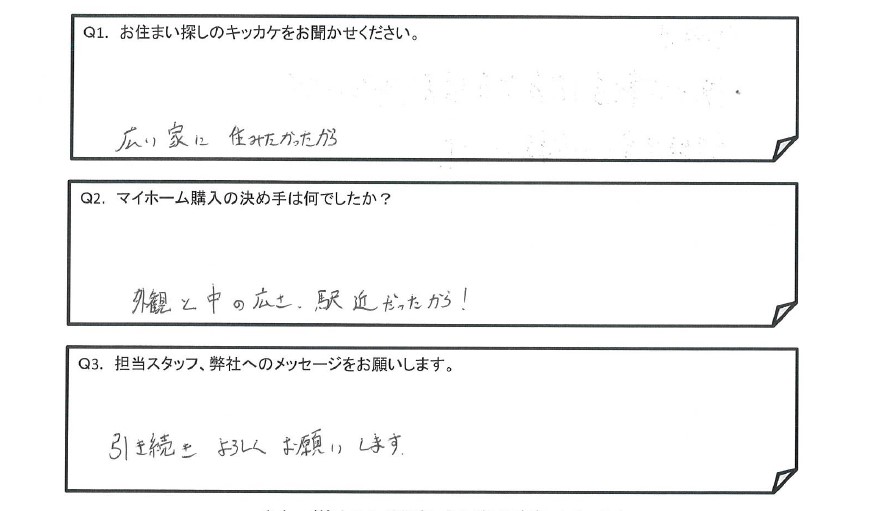 Q1. お住まい探しのキッカケをお聞かせください。
広い家に 住みたかったから
Q2. マイホーム購入の決め手は何でしたか？
外観と中の広さ、駅近だったから！
Q3. 担当スタッフ、弊社へのメッセージをお願いします。
引き続き よろしく お願いします。